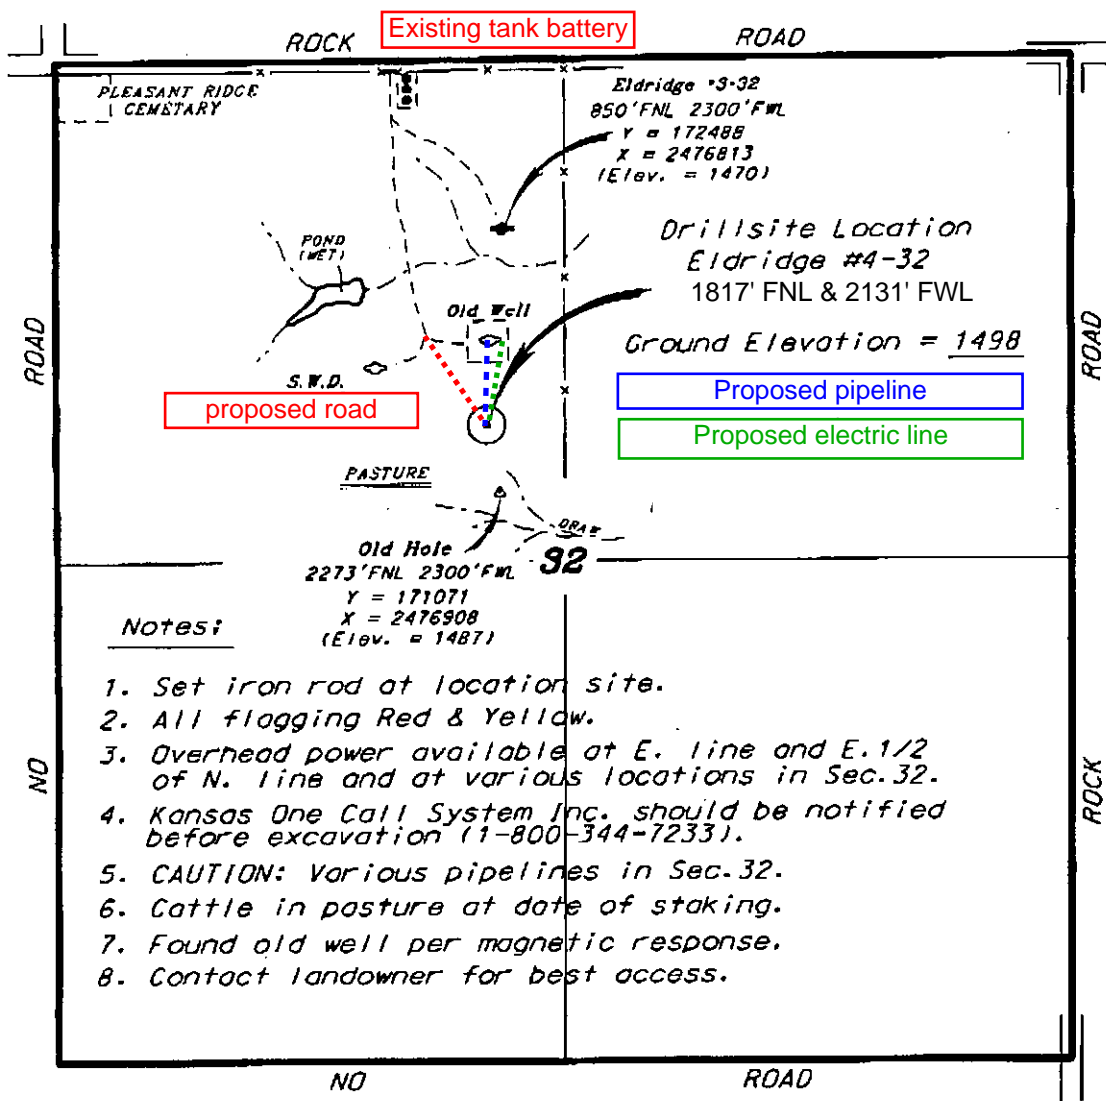 Existing tank battery
ROCK
ROAD
PLEASANT RIDGE
CEMETARY
Eldridge #3-32
850'FNL 2300'FWL
Y = 172488
X = 2476813
(Elev. = 1470)
Drillsite Location
Eldridge #4-32
1817' FNL & 2131' FWL
POND
(WET)
Old Well
Ground Elevation = 1498
ROAD
ROAD
S.W.D.
proposed road
Proposed pipeline
Proposed electric line
PASTURE
DRAW
Old Hole
2273'FNL 2300'FWL
32
Y = 171071
X = 2476908
(Elev. = 1487)
Notes:
1. Set iron rod at location site.
2. All flagging Red & Yellow.
3. Overhead power available at E. line and E.1/2
of N. line and at various locations in Sec.32.
4. Kansas One Call System Inc. should be notified
before excavation (1-800-344-7233).
5. CAUTION: Various pipelines in Sec.32.
6. Cattle in pasture at date of staking.
7. Found old well per magnetic response.
8. Contact landowner for best access.
NO
ROCK
NO
ROAD